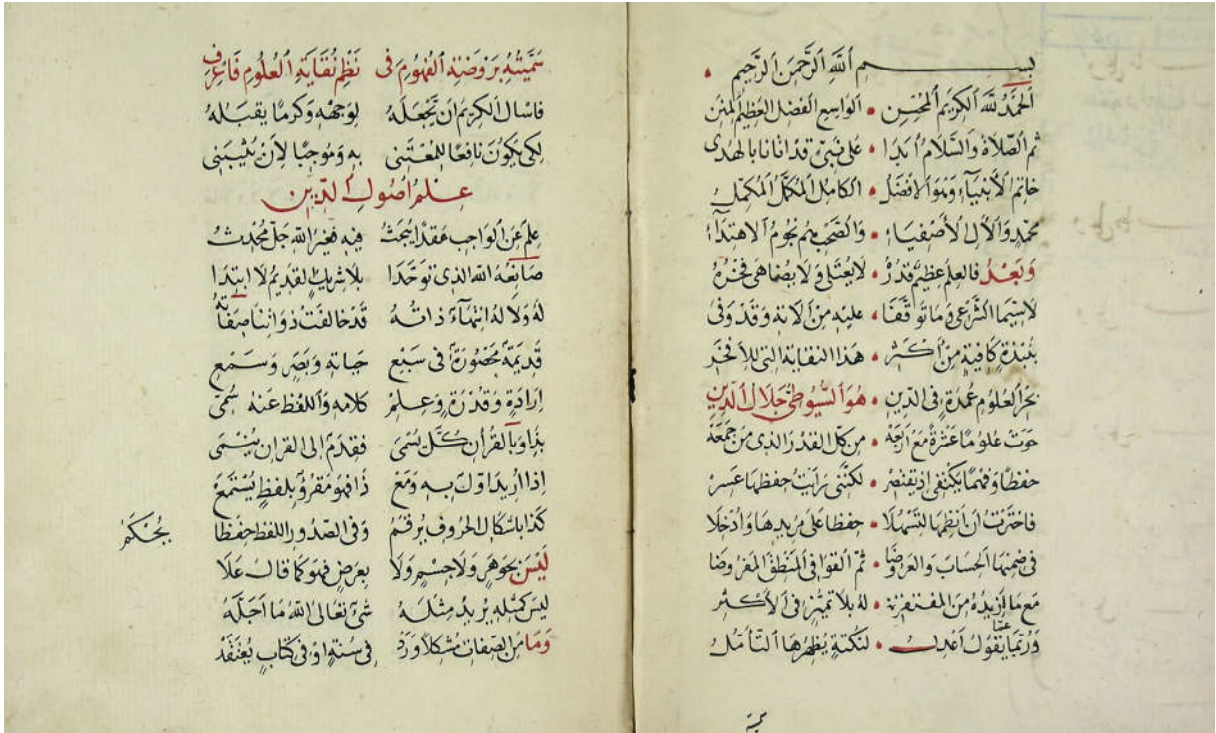 بســـم ٱللَّهِ ٱلرَّحْمَنِ ٱلرَّحِيمِ
ٱلْحَمْدُ لِلَّهِ ٱلْكَرِيمِ ٱلْمُحْسِنِ • ٱلْوَاسِعِ ٱلْفَضْلِ ٱلْعَظِيمِ ٱلْمِنَنِ
ثم ٱلصَّلَاةُ وَٱلسَّلَامُ أَبَدَا • عَلَى نَبِيٍّ قَدْ أَتَانَا بِالهُدَى
خَاتِمِ ٱلْأَنْبِيَاءِ وَهْوَ ٱلْأَفْضَلُ • ٱلْكَامِلُ ٱلْمُكَمَّلُ ٱلْمُكَمِّلُ
مُحَمَّدٍ وَٱلْآلِ ٱلْأَصْفِيَاءِ • وَٱلصَّحْبِ هُم نُجُومُ ٱلِاهْتِدَاءِ
وَبَعْدُ فَالعِلْمُ عَظِيمٌ قَدْرُهُ • لَا يُعْتَلَى وَلَا يُضَاهَى فَخْرُهُ
لَا سِيَّمَا ٱلشَّرْعِي وَمَا تَوَقَّفَا • عَلَيْهِ مِنْ آلَاتِهِ وَقَدْ وَفَى
بِنُبْذَةٍ كَافِيَةٍ مِنْ أَكْثَرِ • هَذَا النقاية التي للأفخر
بَحْرِ ٱلْعُلُومِ عُمْدَةٍ فِي الدِّينِ • هُوَ ٱلسُّيُوطِيُّ جَلَالُ ٱلدِّينِ
حَوَتْ عُلُومًا عَشْرَةً مَعْ أَرْبَعَهْ • مِن كُلٍّ القَدْرُ الذي مَن جَمَعَهْ
حِفْظًا وَفَهْمًا يَكْتَفِي إِذْ يَقْتَصِرْ • لَكِنَّنِي رَأَيْتُ حِفْظَهَا عَسِرْ
فَاخْتَرْتُ أَنْ أَنْظِمَهَا لِتَسْهُلَا • حِفْظًا عَلَى مُرِيدِهَا وَأُدْخِلَا
فِي ضِمْنِهَا ٱلْحِسَابَ وَالعَرُوضَا • ثُمَّ ٱلْقَوَافِي ٱلْمَنْطِقَ ٱلْمَفْرُوضَا
مَعَ مَا أَزِيدُهُ مِنَ ٱلْمُفْتَقَرِ • لَهُ بِلَا تَمَيُّزٍ فِي ٱلْأَكْثَرِ
وَرُبَّمَا عَمَّا يَقُولُ أَعْدِلُ • لِنُكْتَةٍ يُظْهِرُهَا ٱلتَّأَمُّلُ
سَمَّيْتُهُ بِرَوْضَةِ ٱلْفُهُومِ فِي نَظْمِ نُقَايَةِ ٱلْعُلُومِ فَاعْرِفِ
فَأَسْأَلُ ٱلْكَرِيمَ أَنْ يَجْعَلَهُ لِوَجْهِهِ وَكَرَمًا يَقْبَلَهُ
لِكَيْ يَكُونَ نَافِعًا لِلْمُعْتَنِي بِهِ وَمُوجِبًا لِأَنْ يُثِيبَنِي
عِلْمُ أُصُولِ ٱلدِّينِ
عِلْمٌ عَنِ ٱلْوَاجِبِ عَقْدًا يُبْحَثُ فِيهِ فَغَيْرُ اللّهِ جَلَّ مُحْدَثُ
صَانِعُهُ اللّهُ الذي تَوَحَّدَا بِلَا شَرِيكٍ القَدِيمُ لَا ابْتِدَا
لَهُ وَلَا لَهُ انْتِهَاءٌ ذَاتُهُ قَدْ خَالَفَتْ ذَوَاتِنَا صِفَاتُهُ
قَدِيمَةٌ مَحْصُورَةٌ فِي سَبْعِ حَيَاتِهِ وَبَصَرٍ وَسَمْعِ
إِرَادَةٍ وَقُدْرَةٍ وَعِلْمِ كَلَامِهِ وَٱللَّفْظُ عَنْهُ سُمِّي
بِذَا وَبِالقُرْآنِ كُلٌّ سُمِّيَ فَقِدَمٌ إِلَى القُرْآنِ يَنْتَمِي
إِذَا أُرِيدَ أَوَّلٌ بِهِ وَمَعْ ذَا فَهْوَ مَقْرُوٌّ بِلَفْظٍ يُسْتَمَعْ
كَذَا بِأَشْكَالِ الحُرُوفِ يُرْقَمُ وَفِي الصُّدُورِ اللفْظُ حِفْظًا يُحْكَمُ
لَيْسَ بِجَوْهَرٍ وَلَا جِسْمٍ وَلَا بِعَرَضٍ فَهْوَ كَمَا قَالَ عَلَا
لَيْسَ كَمِثْلِهِ يُرِيدُ مِثْلَهُ شَيْءٌ تَعَالَى اللّهُ مَا أَجَلَّهُ
وَمَا مِنَ الصِّفَاتِ مُشْكِلًا وَرَدْ فِي سُنَّةٍ أَوْ فِي كِتَابٍ يُعْتَقَدْ